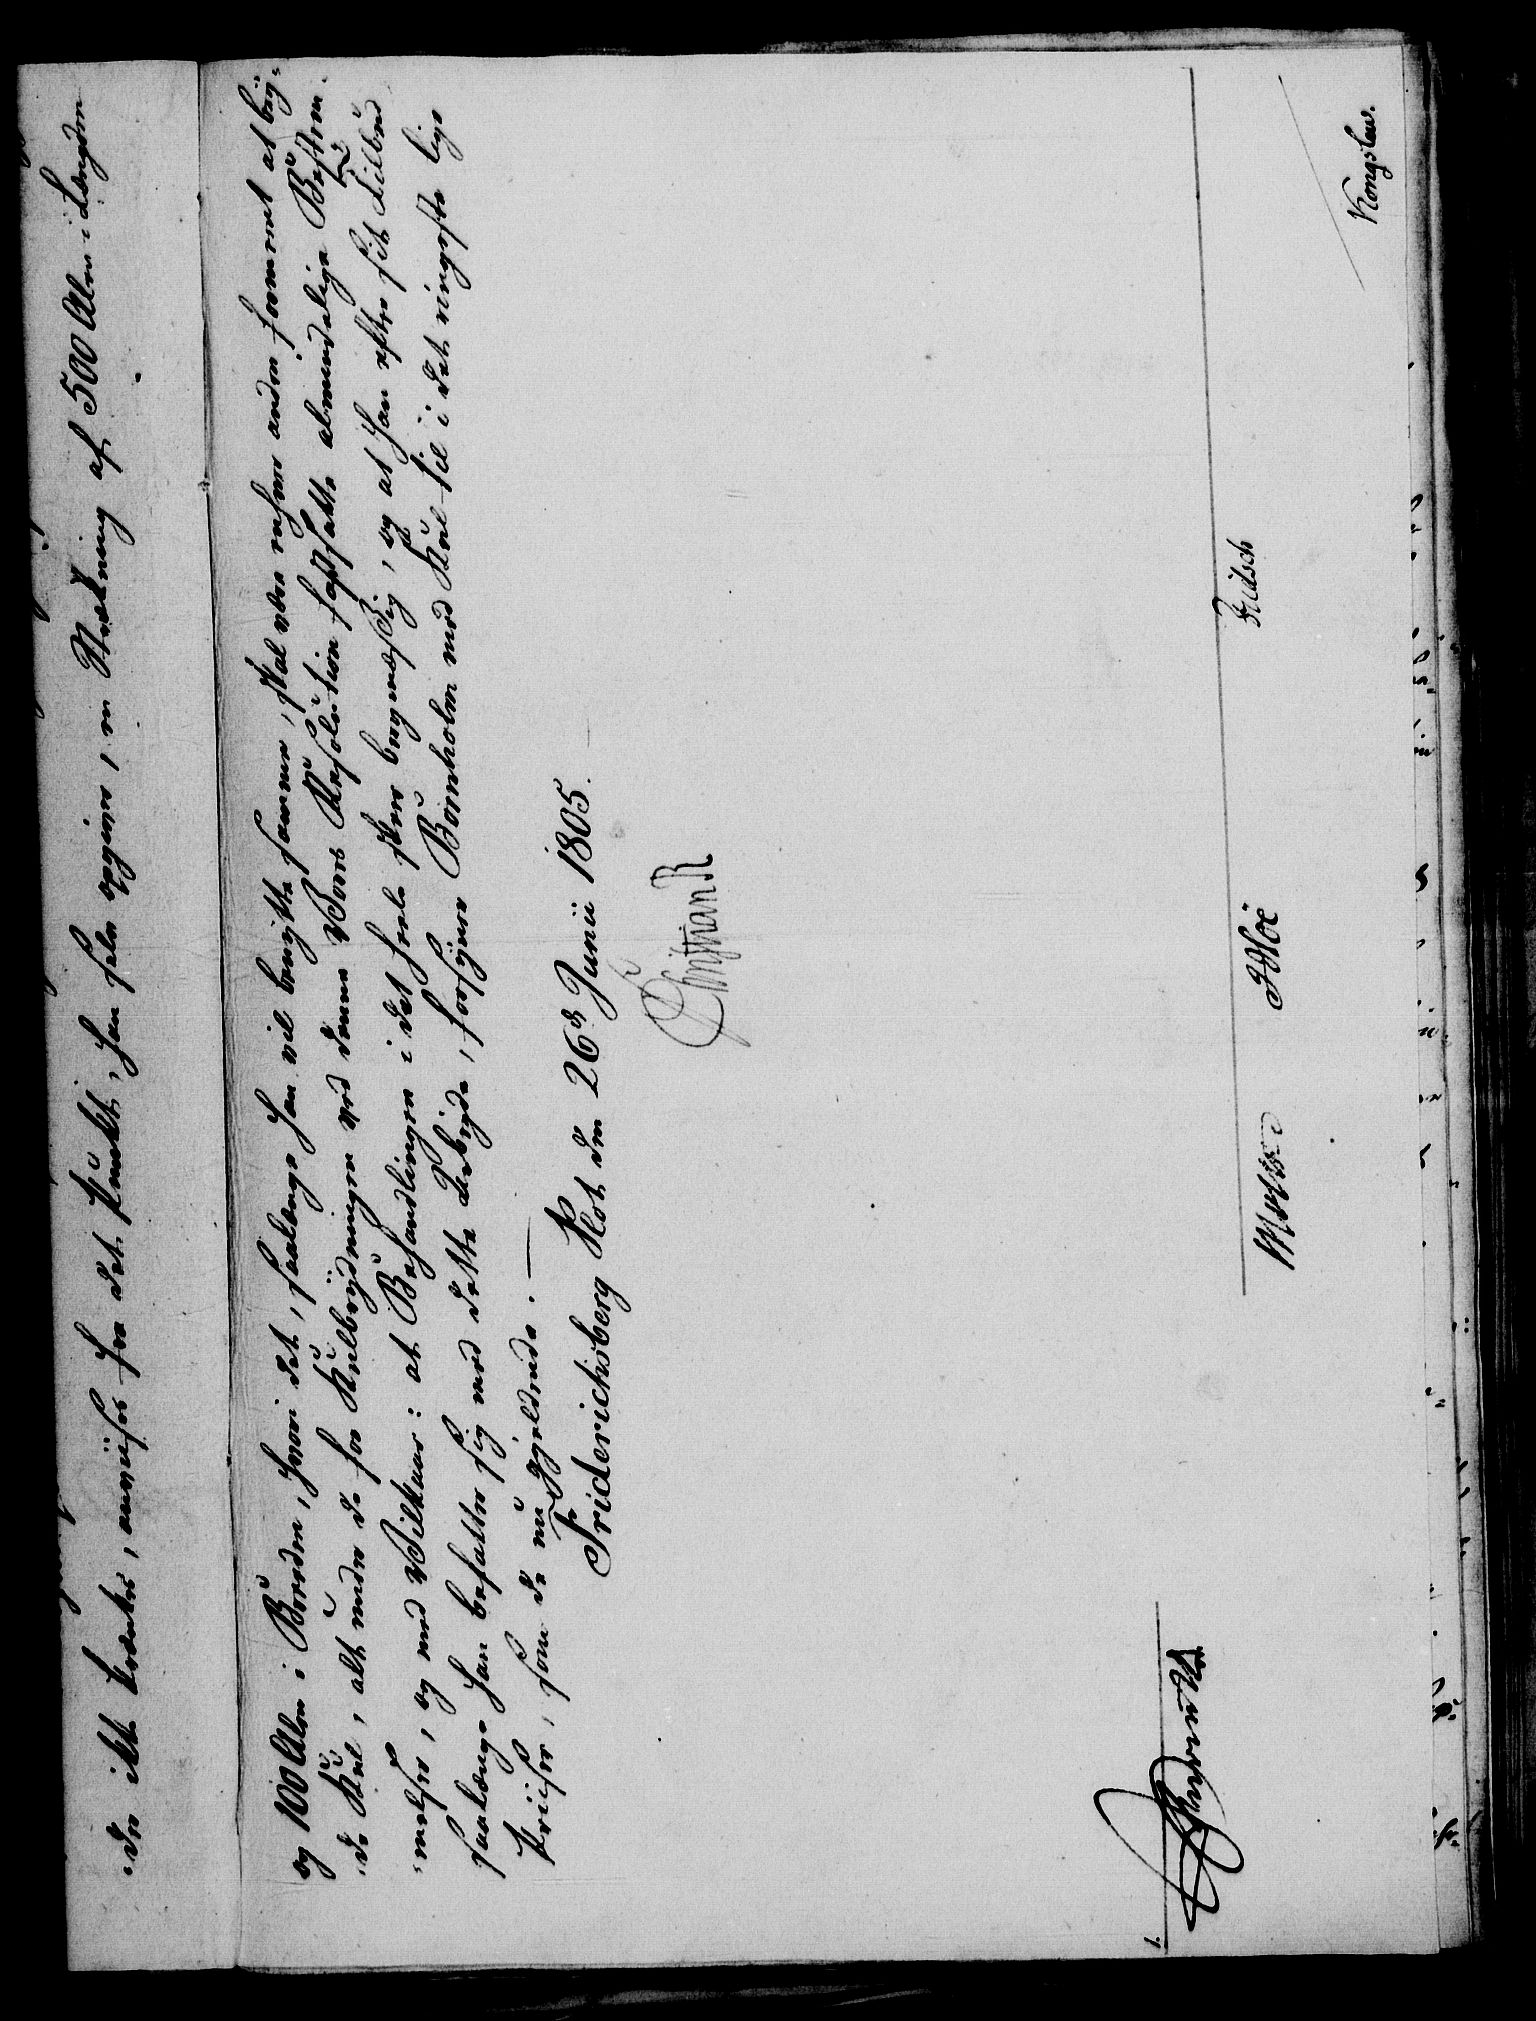 der ikke kodakes, anviises fra det Punkt, han selv opgiver, en Strækning af 500 Alen i Længden
og 100 Alen i Breden, hvori det, saalænge han vil benytte samme, skal være enhver anden formeent at bry-
de Kul, alt under de for Kulbrydningen ved denne Vores Resolution fastsatte almindelige Bestem-
melser, og med Vilkaar: at Behandlingen i det heele skeer bergmæssig, og at han efter sit Tilbud
saalænge han befatter sig med dette Arbejde, forsyner Bornholm med Kul til i det ringeste lige
Priiser, som de nu gjeldende. —
Friderichsberg Slot den 26de Junii 1805.
Christian R
1.
Kongslew.